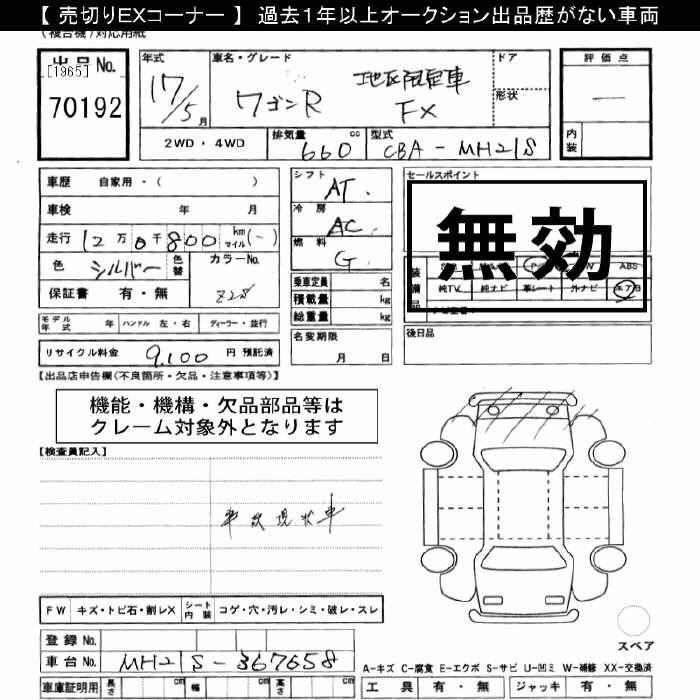 【 売切りEXコーナー 】 過去１年以上オークション出品歴がない車両
(複合機)対応用紙
出品No.
[1965]
70192
年式
17/5月
車名・グレード
地区限定車
ワゴンR FX
ドア
形状
評価点
—
内装
2WD・4WD
排気量 cc
660
型式
CBA-MH21S
車歴 自家用・( )
車検 年 月
走行 12万0千800 km マイル(-)
色 シルバー 色替
カラーNo.
Z2S
保証書 有・無
シフト AT.
冷房 AC.
燃料 G.
乗車定員 名
積載量 kg
総重量 kg
セールスポイント
無効
装備品
ABS
純TV 純ナビ 革シート 外ナビ エアB
モデル年式 年 ハンドル 左・右 ディーラー・並行
リサイクル料金 9,100 円 預託済
名変期限
月 日
後日品
【出品店申告欄(不良箇所・欠品・注意事項等)】
機能・機構・欠品部品等は
クレーム対象外となります
【検査員記入】
事故現状車
FW キズ・トビ石・割レX シート内装 コゲ・穴・汚レ・シミ・破レ・スレ
登録No.
車台No. MH21S-367658
車庫証明用 長さ cm 幅 cm 高さ cm
スペア
A-キズ C-腐食 E-エクボ S-サビ U-凹ミ W-補修 XX-交換済
工具 有・無 ジャッキ 有・無